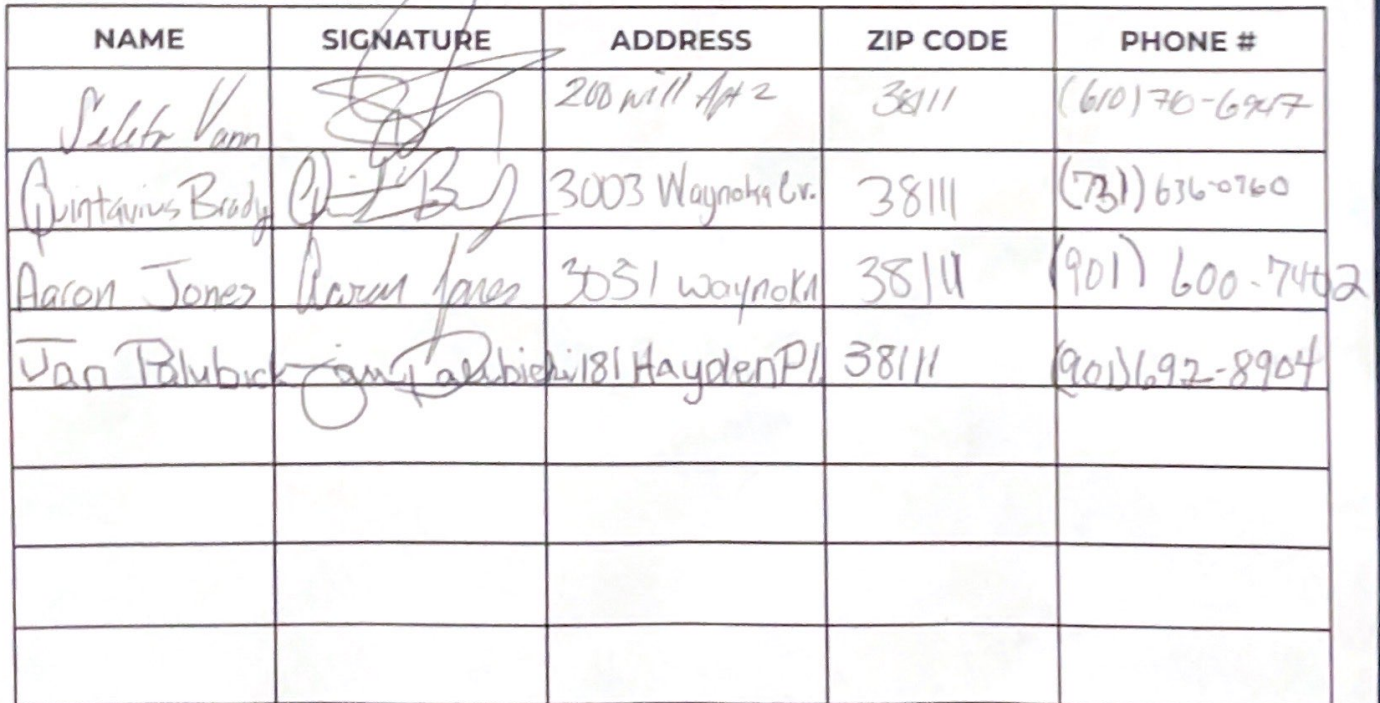 NAME SIGNATURE ADDRESS ZIP CODE PHONE #
Vann 200 Apt 2 38111 (610)
Quintavius Brady 3003 Waynoka Cr. 38111 (731) 636-0760
Aaron Jones Aaron Jones 3051 waynoka 38111 (901) 600-7402
Jan Palubicki Jan Palubicki 181 Hayden Pl. 38111 (901)692-8904